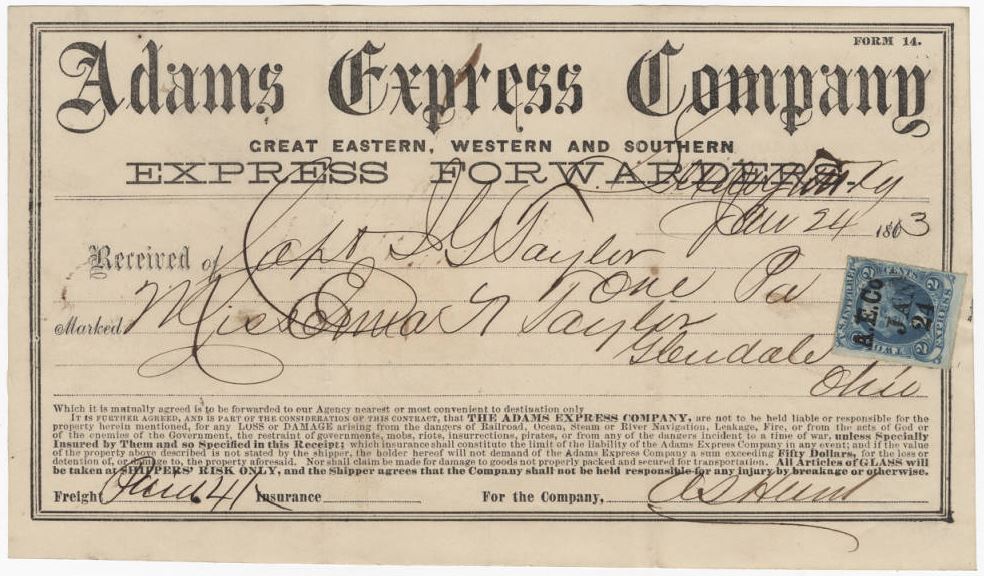 FORM 14.
Adams Express Company
GREAT EASTERN, WESTERN AND SOUTHERN
EXPRESS FORWARDERS.
Ky
Jan 24 1863
Received of Capt J G Taylor
One Pa
Marked. Miss Emma N Taylor
Glendale
Ohio
U.S. INTER. REV.
2 CENTS 2
A. E. Co
JAN
24
EXPRESS
2 TWO 2
Which it is mutually agreed is to be forwarded to our Agency nearest or most convenient to destination only
IT IS FURTHER AGREED, AND IS PART OF THE CONSIDERATION OF THIS CONTRACT, that THE ADAMS EXPRESS COMPANY, are not to be held liable or responsible for the
property herein mentioned, for any LOSS or DAMAGE arising from the dangers of Railroad, Ocean, Steam or River Navigation, Leakage, Fire, or from the acts of God or
of the enemies of the Government, the restraint of governments, mobs, riots, insurrections, pirates, or from any of the dangers incident to a time of war, unless Specially
Insured by Them and so Specified in this Receipt; which insurance shall constitute the limit of the liability of the Adams Express Company in any event; and if the value
of the property above described is not stated by the shipper, the holder hereof will not demand of the Adams Express Company a sum exceeding Fifty Dollars, for the loss or
detention of, or damage to, the property aforesaid. Nor shall claim be made for damage to goods not properly packed and secured for transportation. All Articles of GLASS will
be taken at SHIPPERS' RISK ONLY, and the Shipper agrees that the Company shall not be held responsible for any injury by breakage or otherwise.
Freight, Insurance For the Company, Hunt